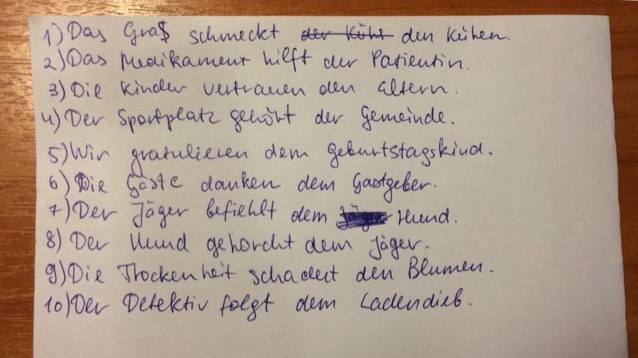 1) Das Gras schmeckt der Kühe den Kühen.
2) Das Medikament hilft der Patientin.
3) Die Kinder vertrauen den Eltern.
4) Der Sportplatz gehört der Gemeinde.
5) Wir gratulieren dem Geburtstagskind.
6) Die Gäste danken dem Gastgeber.
7) Der Jäger befiehlt dem Hund.
8) Der Hund gehorcht dem Jäger.
9) Die Trockenheit schadet den Blumen.
10) Der Detektiv folgt dem Ladendieb.